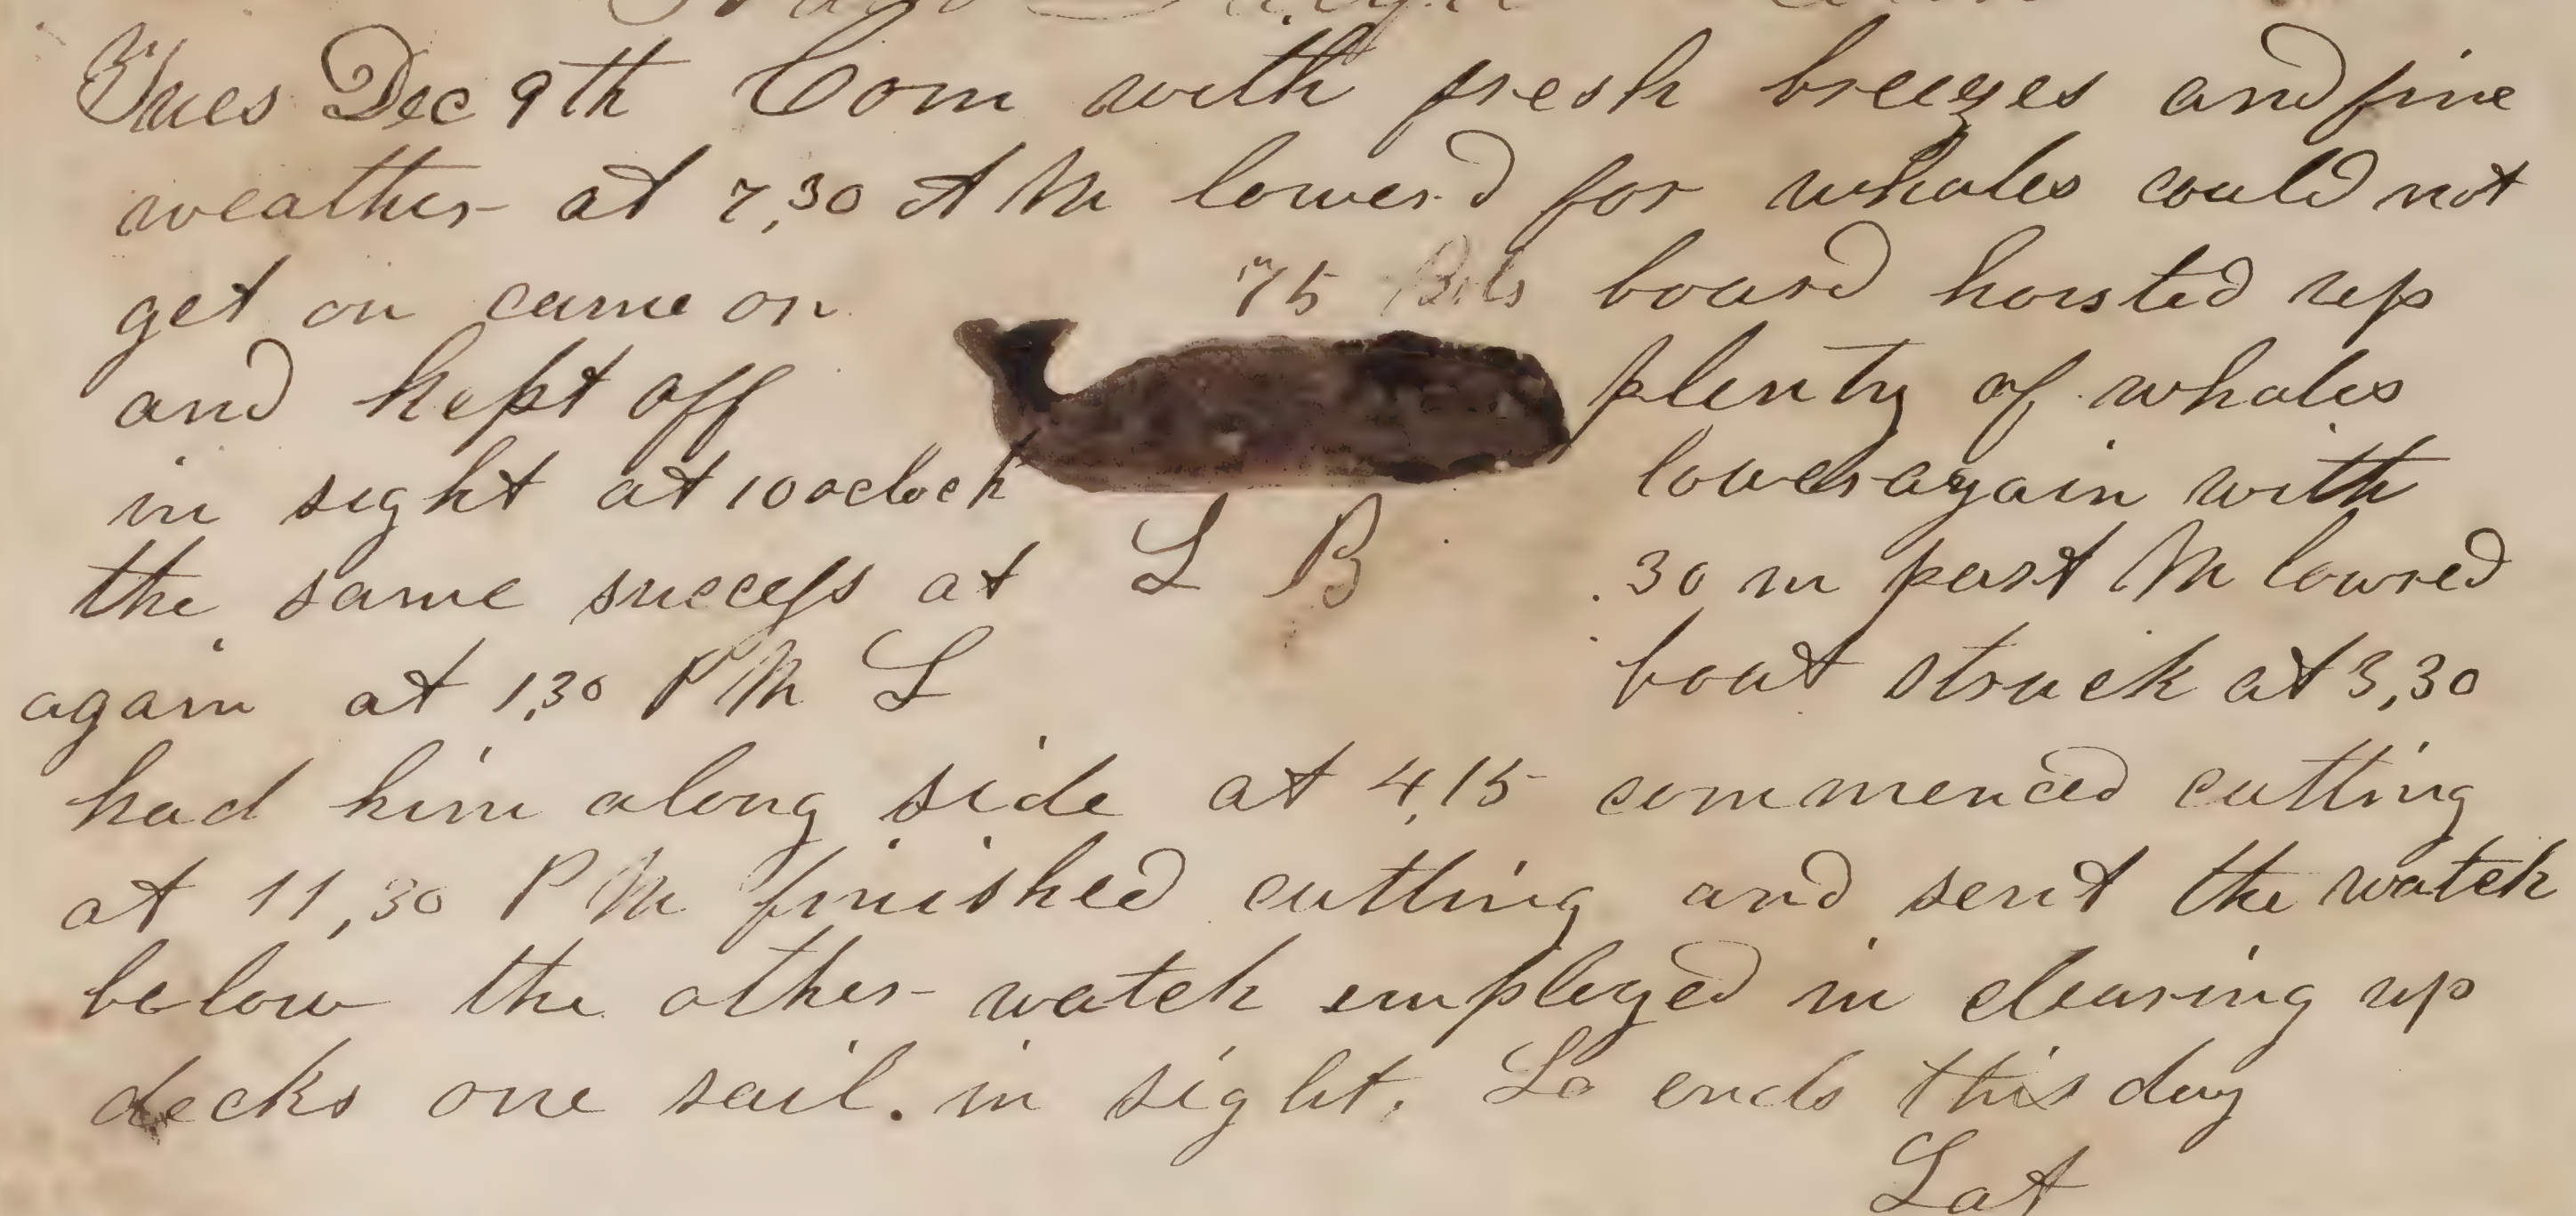 Tues Dec 9th Com with fresh breezes and fine
weather at 7,30 A M lower'd for whales could not
get on came on 75 Bbls board hoisted up
and kept off plenty of whales
in sight at 10 oclock lower again with
the same success at L B 30 m past M lowred
again at 1,30 P M L boat struck at 3,30
had him along side at 4,15 commenced cutting
at 11,30 P M finished cutting and sent the watch
below the other watch employed in clearing up
decks one sail. in sight. So ends this day
Lat